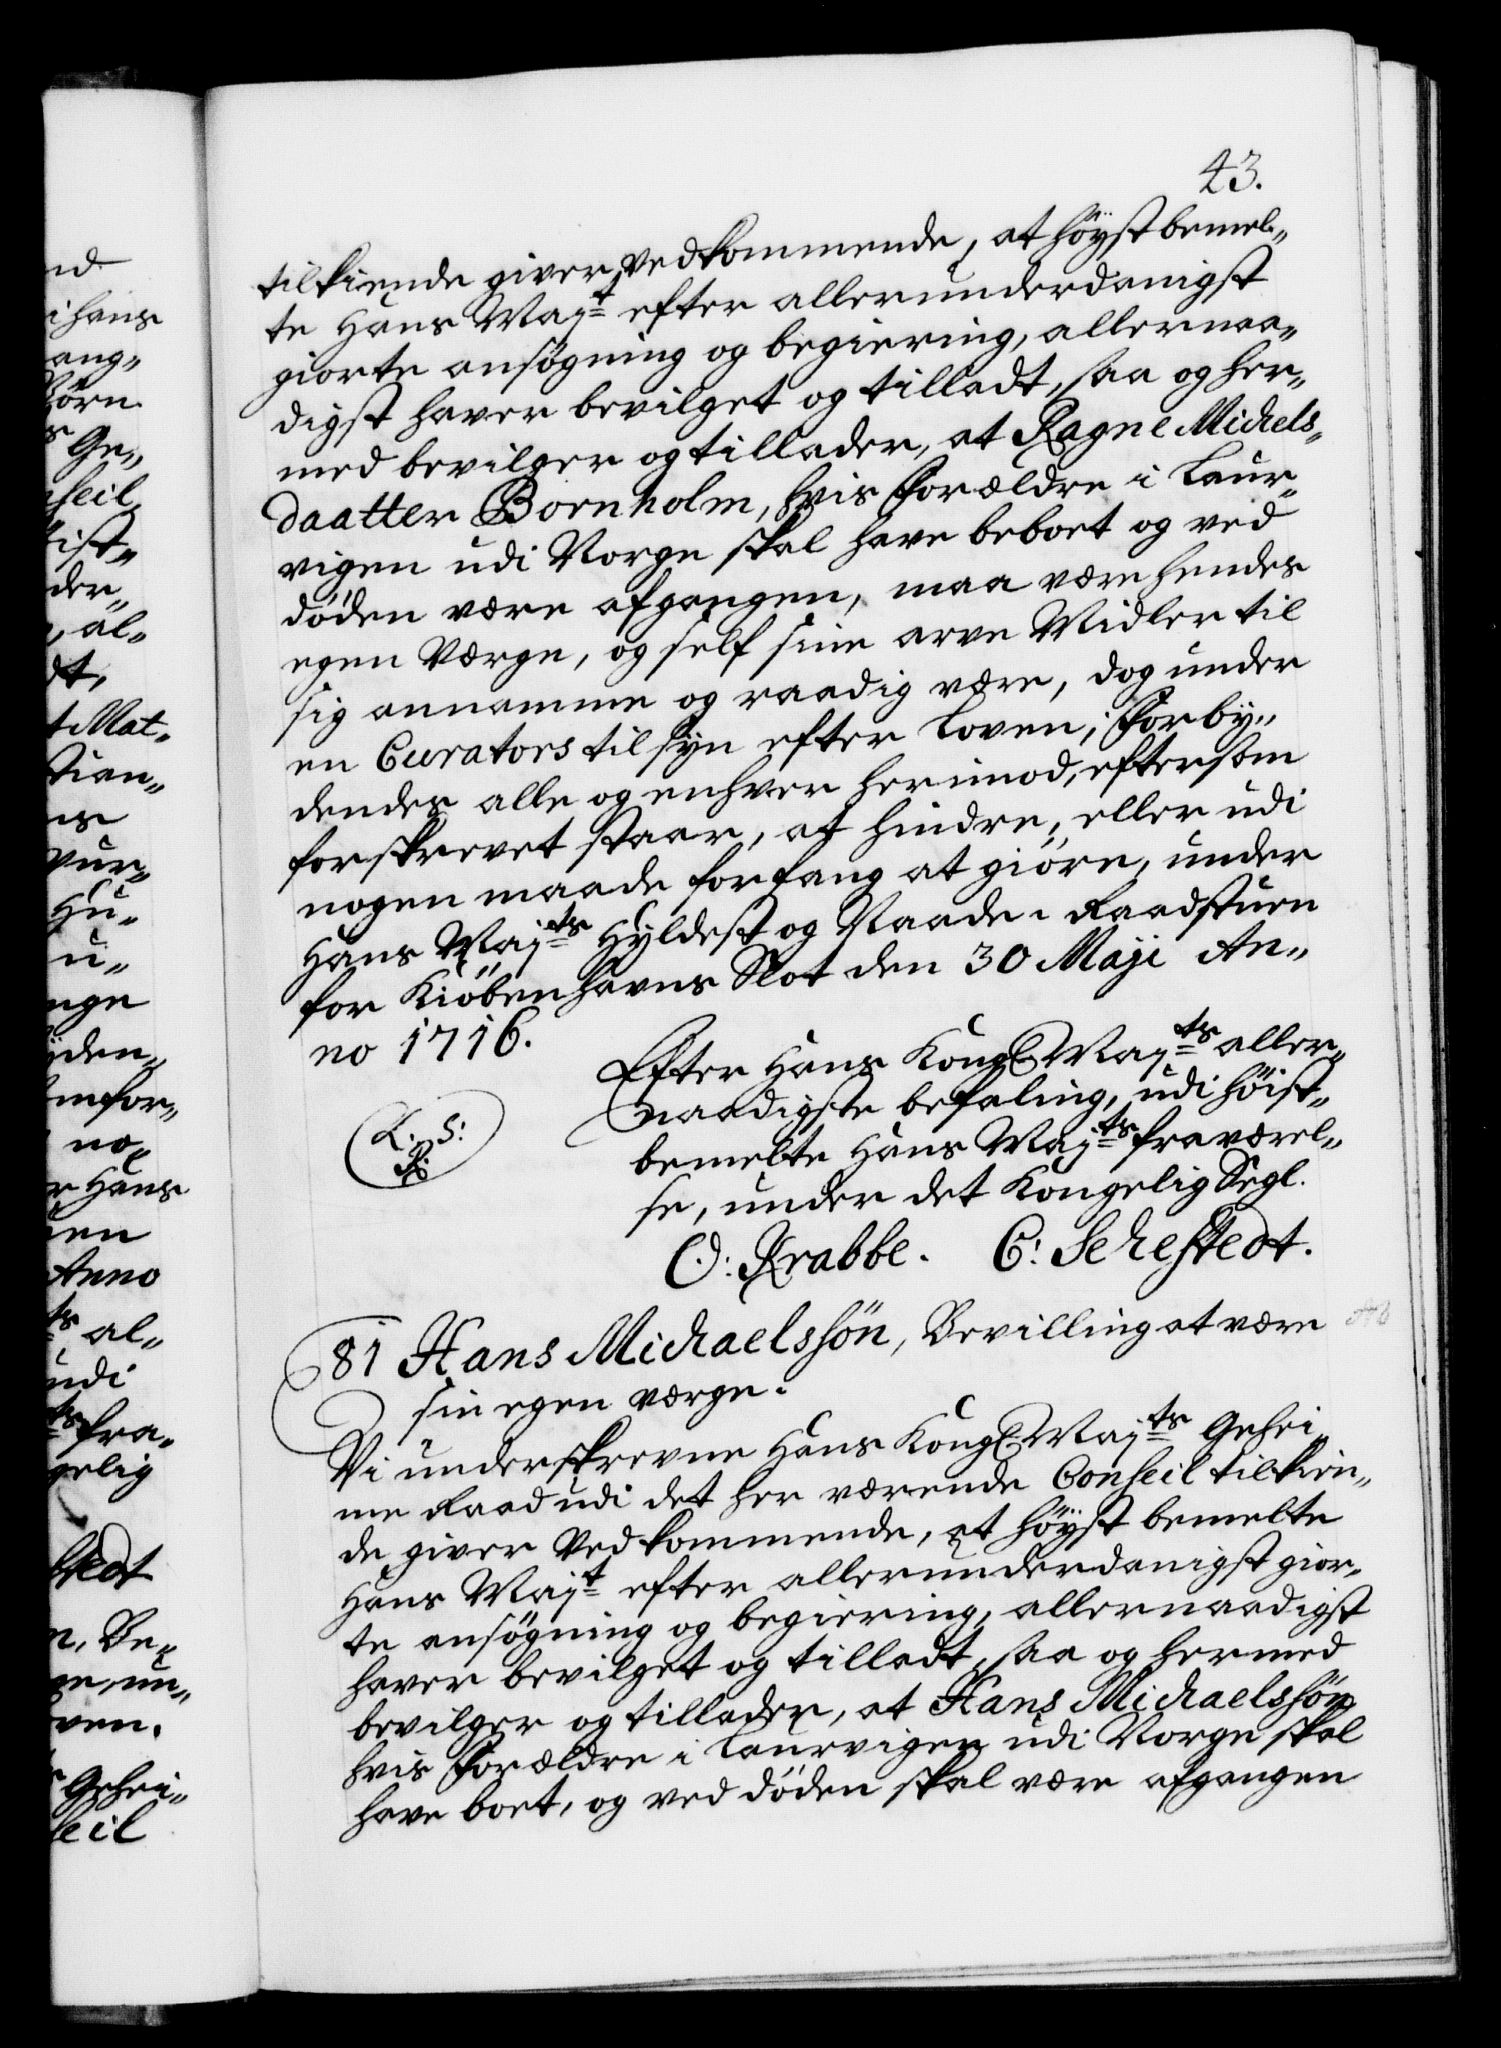 43.
tilkiende giver Vedkommende, at höyst bemel„
te Hans Majt efter allerunderdanigst
giorte ansögning og begiering, allernaa„
digst haver bevilget og tilladt, saa og her„
med bevilger og tillader, at Ragne Michels„
daatter Bornholm, hvis Forældre i Laur„
vigen udi Norge skal have beboet og ved
döden være afgangen, maa være hendes
egen Værge, og self sine arve Midler til
sig annamme og raadig være, dog under
en Curators tilsyn efter Loven; Forby„
dendes alle og enhver herimod, eftersom
forskrevet staar, at hindre, eller udi
nogen maade forfang at giöre, under
Hans Majts Hyldest og Naade. Raadstuen
for Kiöbenhavns Slot den 30 Maji An„
no 1716.
Efter Hans Kongl Majts aller„
naadigste befaling, udi höist„
bemelte Hans Majts fraværel„
se, under det Kongelig Segl.
L. S:
R:
O: Krabbe. C: Sehestedt.
81 Hans Michaelssön, Bevilling at være
sin egen værge.
Vi underskrevne Hans Kongl Majts Gehei„
me Raad udi det her værende Conseil tilkien„
de giver Vedkommende, at höyst bemelte
Hans Majt efter allerunderdanigst gior„
te ansögning og begiering, allernaadigst
haver bevilget og tilladt, saa og hermed
bevilger og tillader, at Hans Michaelssön
hvis Forældre i Laurvigen udi Norge skal
have boet, og ved döden skal være afgangen